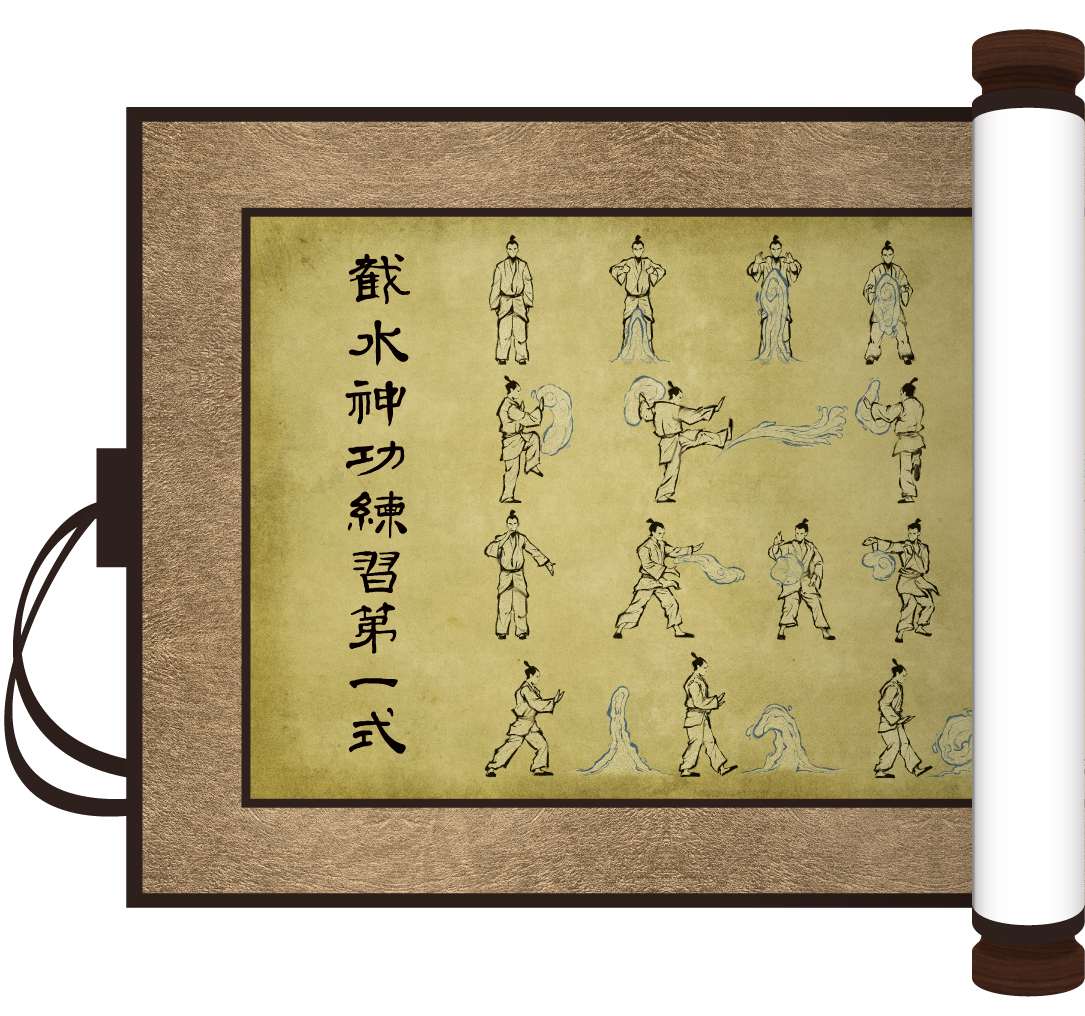 截水神功練習第一式